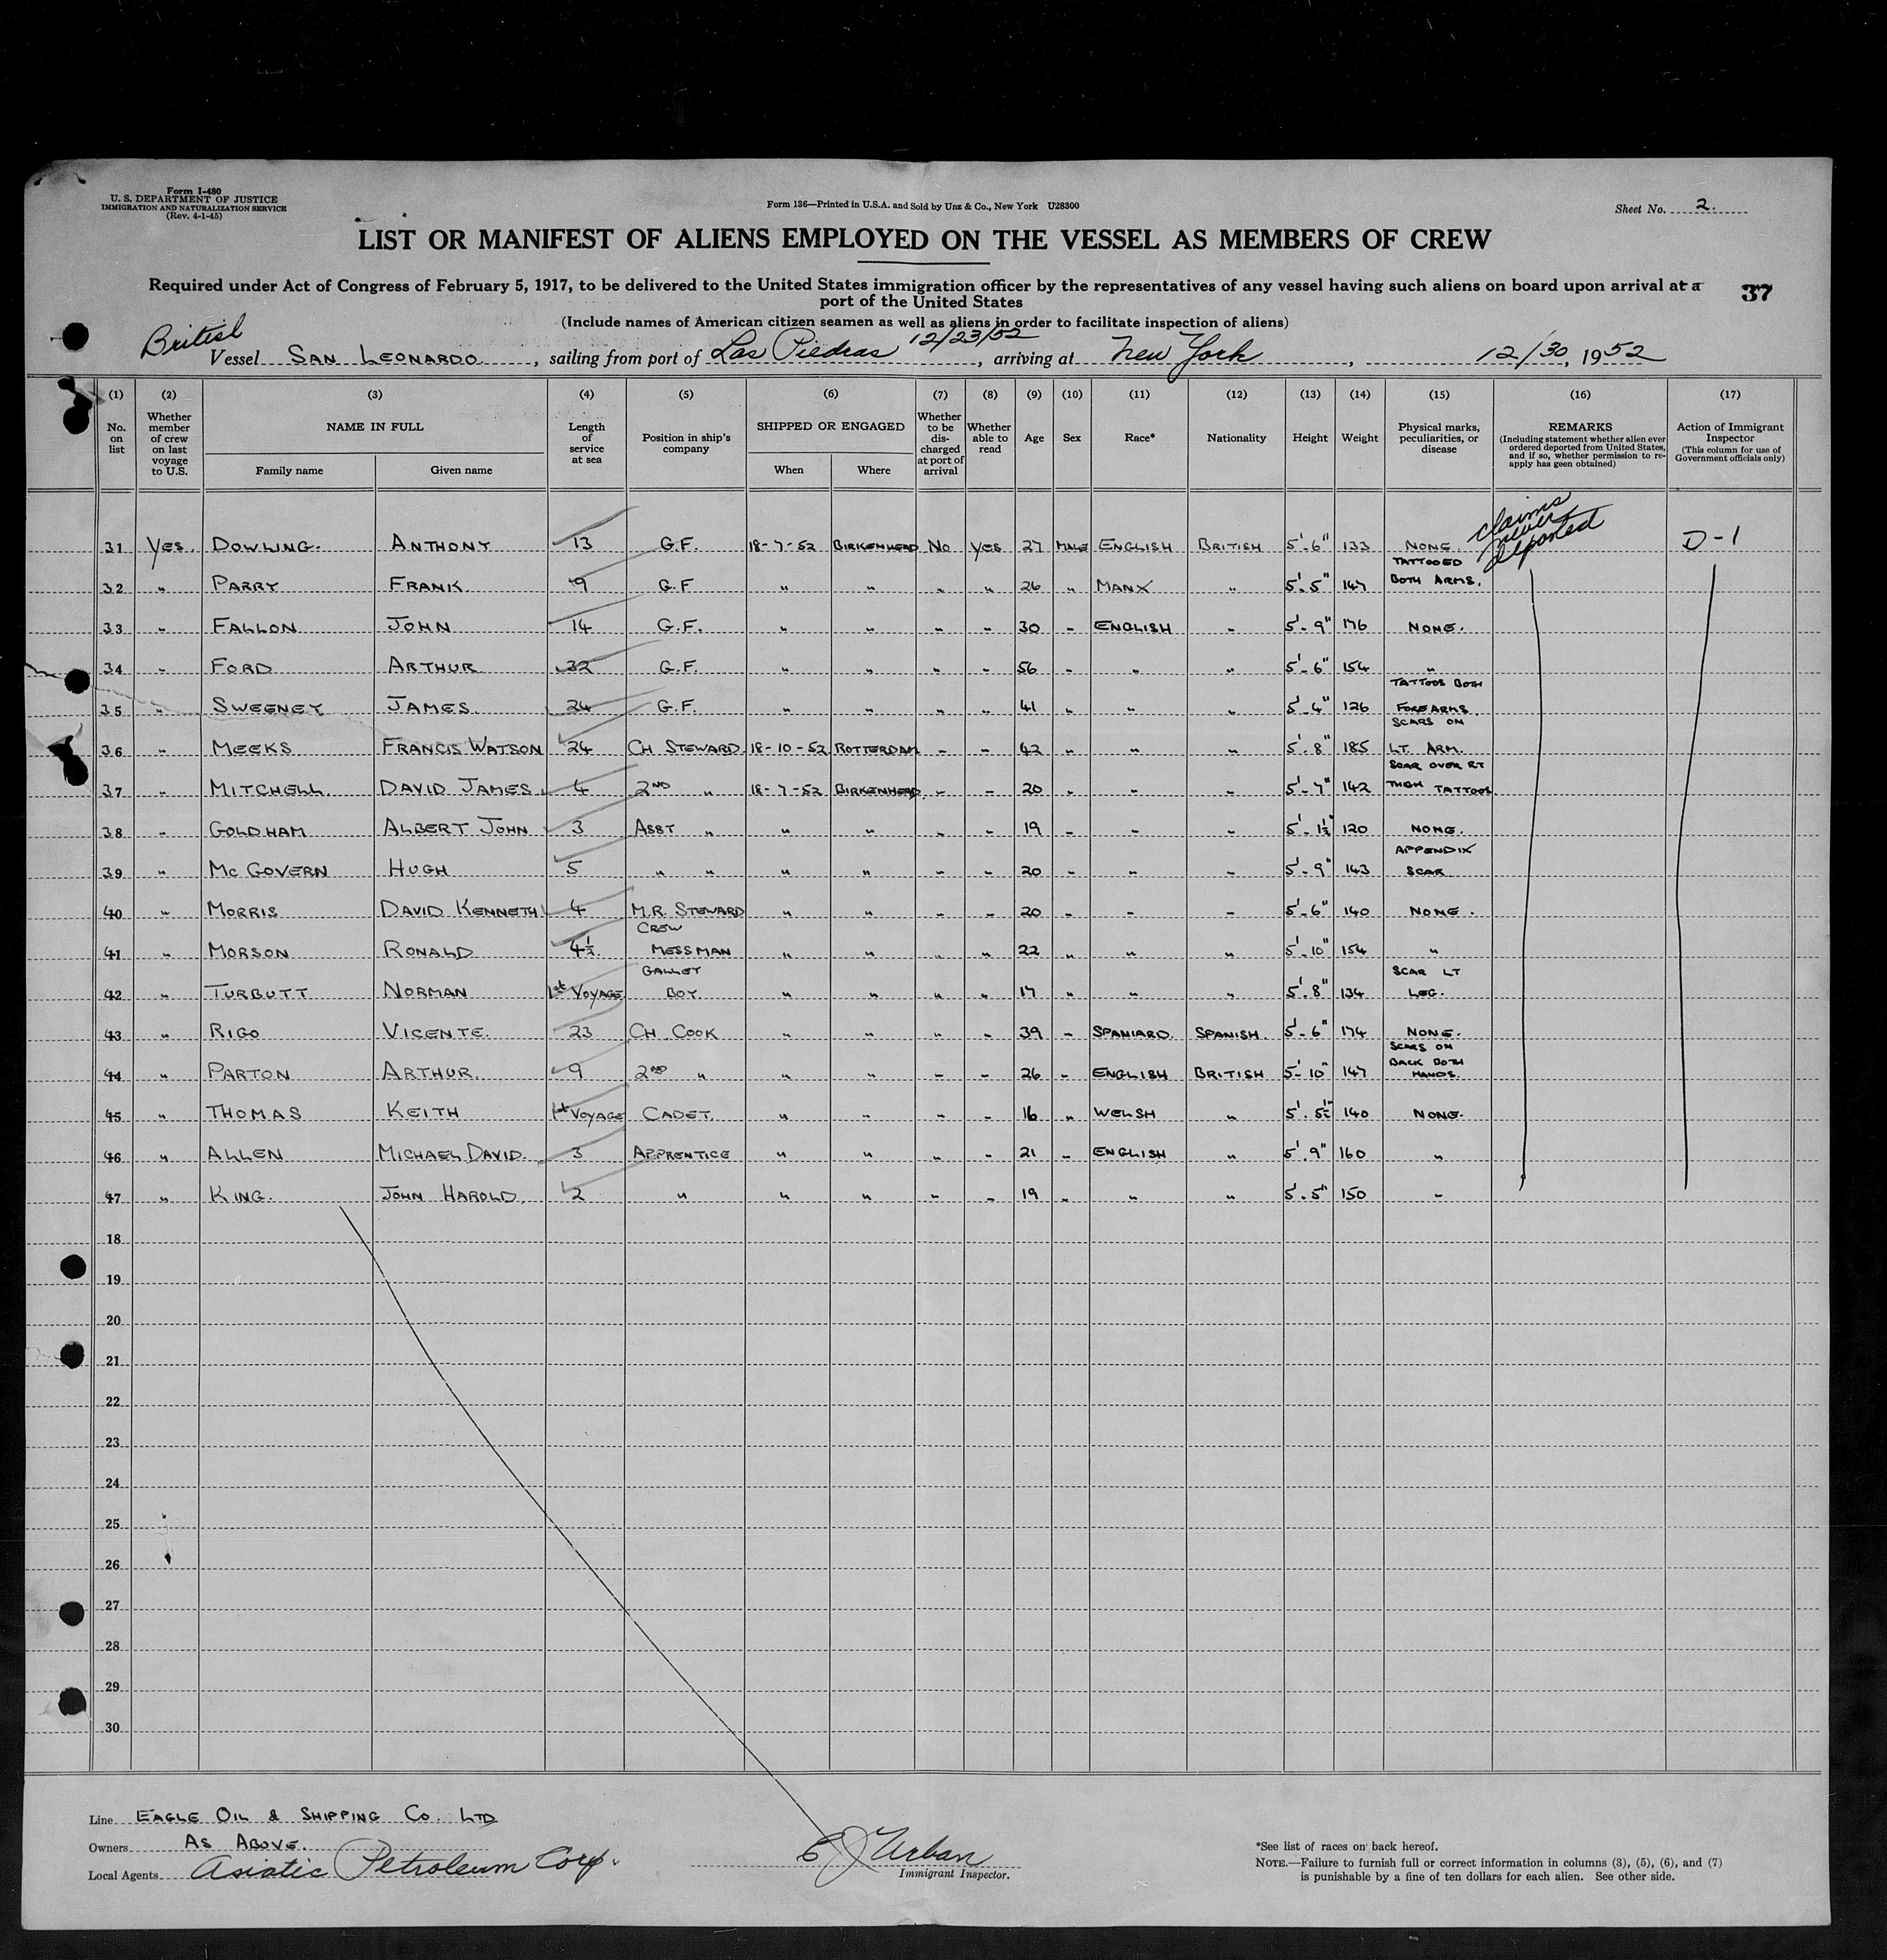 Form I-480
U. S. DEPARTMENT OF JUSTICE
IMMIGRATION AND NATURALIZATION SERVICE
(Rev. 4-1-45)
Form 136—Printed in U.S.A. and Sold by Unz & Co., New York U28300
Sheet No. 2.
LIST OR MANIFEST OF ALIENS EMPLOYED ON THE VESSEL AS MEMBERS OF CREW
Required under Act of Congress of February 5, 1917, to be delivered to the United States immigration officer by the representatives of any vessel having such aliens on board upon arrival at a
port of the United States
37
(Include names of American citizen seamen as well as aliens in order to facilitate inspection of aliens)
British 12/23/52
Vessel SAN LEONARDO, sailing from port of Las Piedras, arriving at New York, 12/30, 1952
(1) (2) (3) (4) (5) (6) (7) (8) (9) (10) (11) (12) (13) (14) (15) (16) (17)
No. on list
Whether member of crew on last voyage to U.S.
NAME IN FULL
Family name Given name
Length of service at sea
Position in ship's company
SHIPPED OR ENGAGED
When Where
Whether to be discharged at port of arrival
Whether able to read
Age Sex Race* Nationality Height Weight
Physical marks, peculiarities, or disease
REMARKS
(Including statement whether alien ever ordered deported from United States, and if so, whether permission to re-apply has geen obtained)
Action of Immigrant Inspector
(This column for use of Government officials only)
claims never deported
31 Yes. DOWLING. ANTHONY 13 G.F. 18-7-52 BIRKENHEAD No Yes 27 MALE ENGLISH BRITISH 5'-6" 133 NONE. D-1
32 " PARRY FRANK. 9 G.F " " " " 26 " MANX " 5'-5" 147 TATTOOED BOTH ARMS.
33 " FALLON JOHN 14 G.F. " " " " 30 " ENGLISH " 5'-9" 176 NONE.
34 " FORD ARTHUR 32 G.F. " " " " 56 " " " 5'-6" 154 "
35 " SWEENEY JAMES. 24 G.F. " " " " 41 " " " 5'-4" 126 TATTOOS BOTH FOREARMS.
36 " MEEKS FRANCIS WATSON 24 CH. STEWARD. 18-10-52 ROTTERDAM " " 42 " " " 5'.8" 185 SCARS ON LT. ARM.
37 " MITCHELL. DAVID JAMES. 4 2ND " 18-7-52 BIRKENHEAD. " " 20 " " " 5'-7" 142 SCAR OVER RT THIGH TATTOOS
38 " GOLDHAM ALBERT JOHN 3 ASST " " " " " 19 " " " 5'-1½" 120 NONE.
39 " MCGOVERN HUGH 5 " " " " " " 20 " " " 5'-9" 143 APPENDIX SCAR
40 " MORRIS DAVID KENNETH 4 M.R. STEWARD " " " " 20 " " " 5'-6" 140 NONE.
41 " MORSON RONALD 4½. CREW MESSMAN " " " " 22 " " " 5'.10" 154 "
42 " TURBUTT NORMAN 1st VOYAGE GALLEY BOY. " " " " 17 " " " 5'.8" 134 SCAR LT LEG.
43 " RIGO VICENTE. 23 CH. COOK " " " " 39 " SPANIARD. SPANISH. 5'-6" 174 NONE.
44 " PARTON ARTHUR. 9 2ND " " " " " 26 " ENGLISH BRITISH 5'-10" 147 SCARS ON BACK BOTH HANDS.
45 " THOMAS KEITH 1st VOYAGE CADET. " " " " 16 " WELSH " 5'.5½" 140 NONE.
46 " ALLEN MICHAEL DAVID. 3 APPRENTICE " " " " 21 " ENGLISH " 5'.9" 160 "
47 " KING. JOHN HAROLD. 2 " " " " " 19 " " " 5'.5" 150 "
18
19
20
21
22
23
24
25
26
27
28
29
30
Line EAGLE OIL & SHIPPING CO. LTD
Owners AS ABOVE.
Local Agents Asiatic Petroleum Corp.
E J Urban
Immigrant Inspector.
*See list of races on back hereof.
NOTE.—Failure to furnish full or correct information in columns (3), (5), (6), and (7)
is punishable by a fine of ten dollars for each alien. See other side.